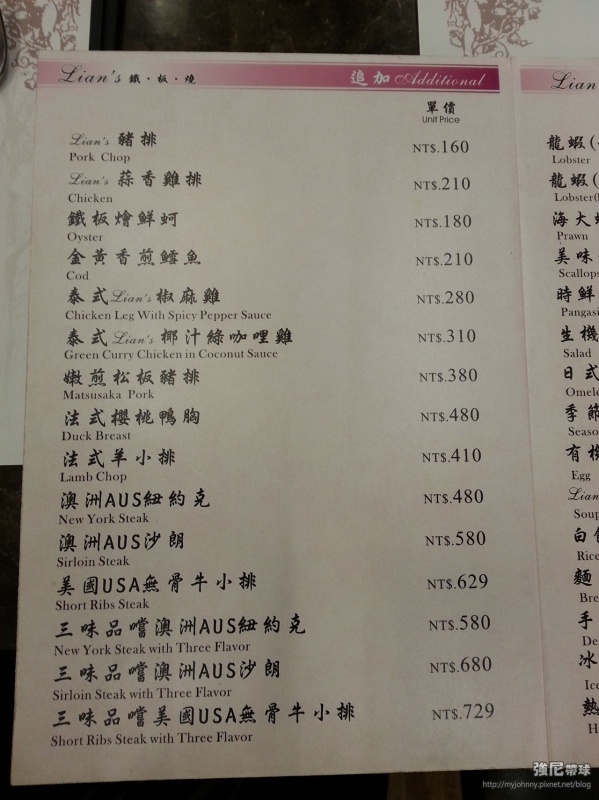 Lian's 鐵·板·燒
追加 Additional
單價
Unit Price
Lian's 豬排
Pork Chop
NT$.160
Lian's 蒜香雞排
Chicken
NT$.210
鐵板燴鮮蚵
Oyster
NT$.180
金黃香煎鱈魚
Cod
NT$.210
泰式Lian's椒麻雞
Chicken Leg With Spicy Pepper Sauce
NT$.280
泰式Lian's椰汁綠咖哩雞
Green Curry Chicken in Coconut Sauce
NT$.310
嫩煎松板豬排
Matsusaka Pork
NT$.380
法式櫻桃鴨胸
Duck Breast
NT$.480
法式羊小排
Lamb Chop
NT$.410
澳洲AUS紐約克
New York Steak
NT$.480
澳洲AUS沙朗
Sirloin Steak
NT$.580
美國USA無骨牛小排
Short Ribs Steak
NT$.629
三味品嚐澳洲AUS紐約克
New York Steak with Three Flavor
NT$.580
三味品嚐澳洲AUS沙朗
Sirloin Steak with Three Flavor
NT$.680
三味品嚐美國USA無骨牛小排
Short Ribs Steak with Three Flavor
NT$.729
Lian
龍蝦(
Lobster
龍蝦(
Lobster(
海大
Prawn
美味
Scallops
時鮮
Pangasi
生機
Salad
日式
Omele
季節
Seaso
有機
Egg
Lian
Soup
白飯
Rice
麵
Bre
手
De
冰
Ice
熱
H
強尼帶球
http://myjohnny.pixnet.net/blog